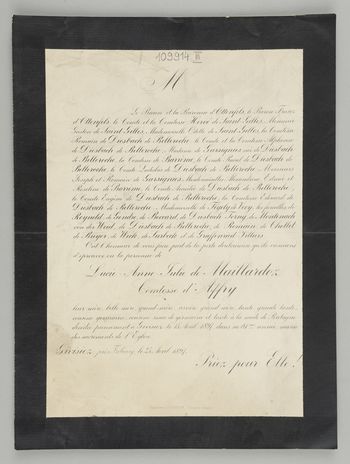 109914 III
M
Le Baron et la Baronne d'Ottenfels, le Baron Franz
d'Ottenfels, le Comte et la Comtesse Hervé de Saint Gilles, Monsieur
de Saint Gilles, Mademoiselle Odette de Saint Gilles, la Comtesse
Romain de Diesbach de Belleroche, le Comte et la Comtesse Alphonse
de Diesbach de Belleroche, Madame de Gassignies née de Diesbach
de Belleroche, la Comtesse de Buruma, le Comte Raoul de Diesbach de
Belleroche, le Comte Ladislas de Diesbach de Belleroche, Messieurs
Joseph et Romain de Gassignies, Mademoiselle Edouard et
de le Comte Amédée de Diesbach de Belleroche,
le Comte Eugène de Diesbach de Belleroche, la Comtesse Edouard de
Diesbach de Belleroche, Mademoiselle de les familles de
Reynold, de Gendre, de Boccard, de Diesbach Torny, de Montenach,
von der Weid, de Diesbach de Belleroche, de Romain, de Chollet,
de Buman, de Weck, de et de Villars
Ont l'honneur de vous faire part de la perte douloureuse qu'ils viennent
d'éprouver en la personne de
Lucie Anne Julie de Maillardoz
Comtesse d'Affry
leur mère, belle mère, grand mère, arrière grand mère, tante, grande tante,
cousine germaine, cousine issue de germaine et tante à la mode de Bretagne
décédée pieusement à Givisiez, le Avril 1897 dans sa 81me année, munie
des sacrements de l'Eglise.
Givisiez, près Fribourg, le Avril 1897.
Priez pour Elle!